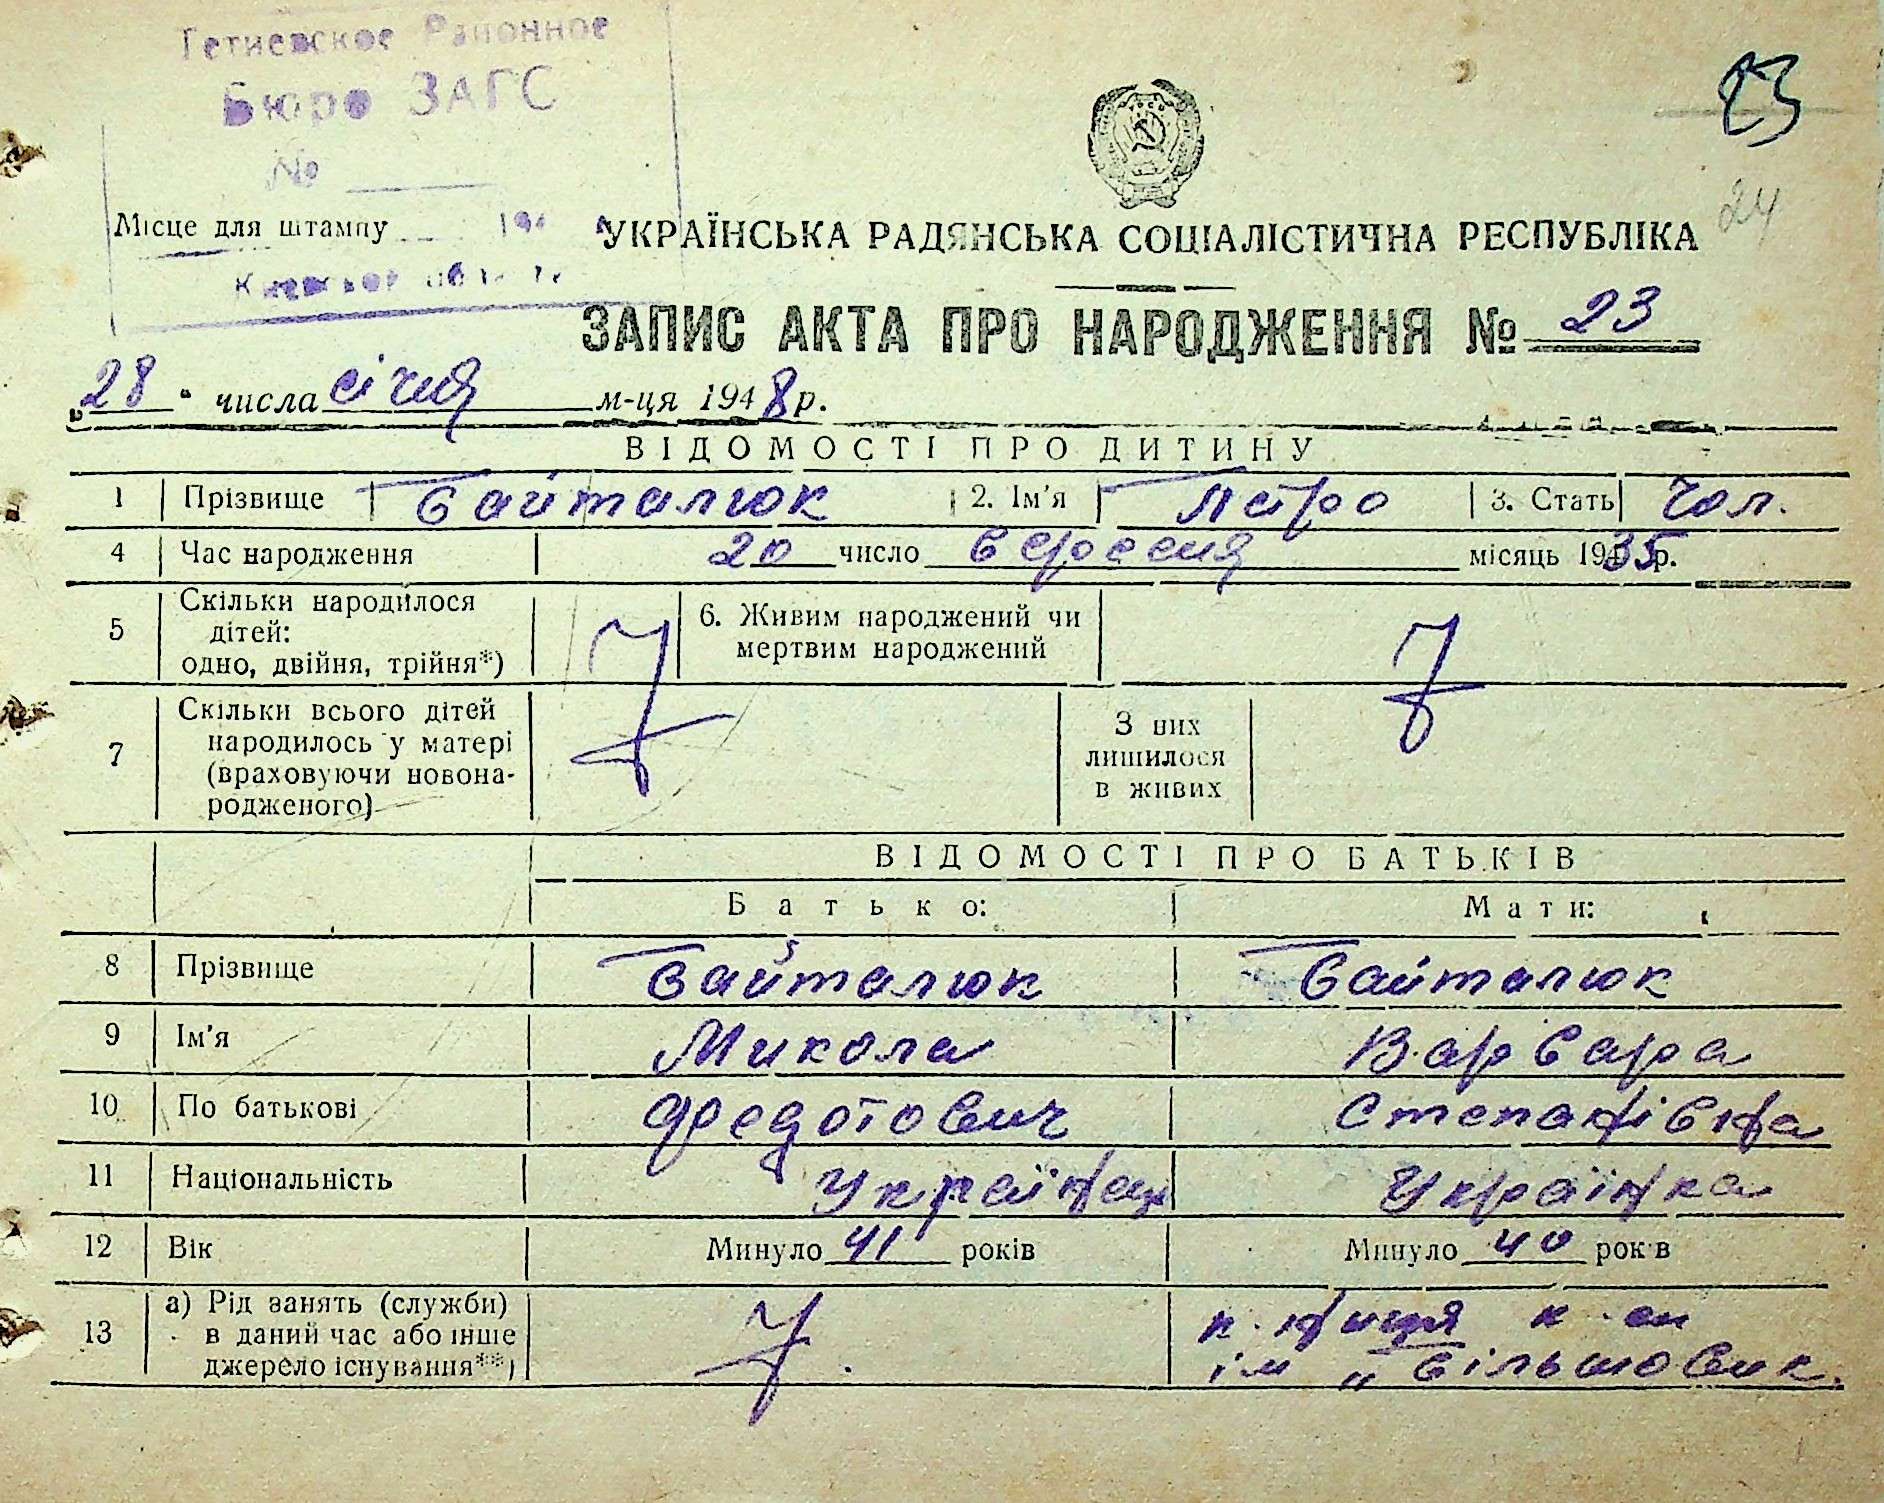 Тетиевское Районное
Бюро ЗАГС
№
23
24
Місце для штампу 194
Киевской области
УКРАЇНСЬКА РАДЯНСЬКА СОЦІАЛІСТИЧНА РЕСПУБЛІКА
ЗАПИС АКТА ПРО НАРОДЖЕННЯ № 23
„28" числа січня м-ця 1948 р.
ВІДОМОСТІ ПРО ДИТИНУ
1 Прізвище Байталюк 2. Ім'я Петро 3. Стать Чол.
4 Час народження 20 число вересня місяць 1935 р.
5 Скільки народилося дітей: одно, двійня, трійня*)
6. Живим народжений чи мертвим народжений
7 Скільки всього дітей народилось у матері (враховуючи новонародженого)
З них лишилося в живих
ВІДОМОСТІ ПРО БАТЬКІВ
Батько: Мати:
8 Прізвище Байталюк Байталюк
9 Ім'я Микола Варвара
10 По батькові Федотович Степанівна
11 Національність Українець Українка
12 Вік Минуло 41 років Минуло 40 років
13 а) Рід занять (служби) в даний час або інше джерело існування**)
к-ниця
ім „Більшовик